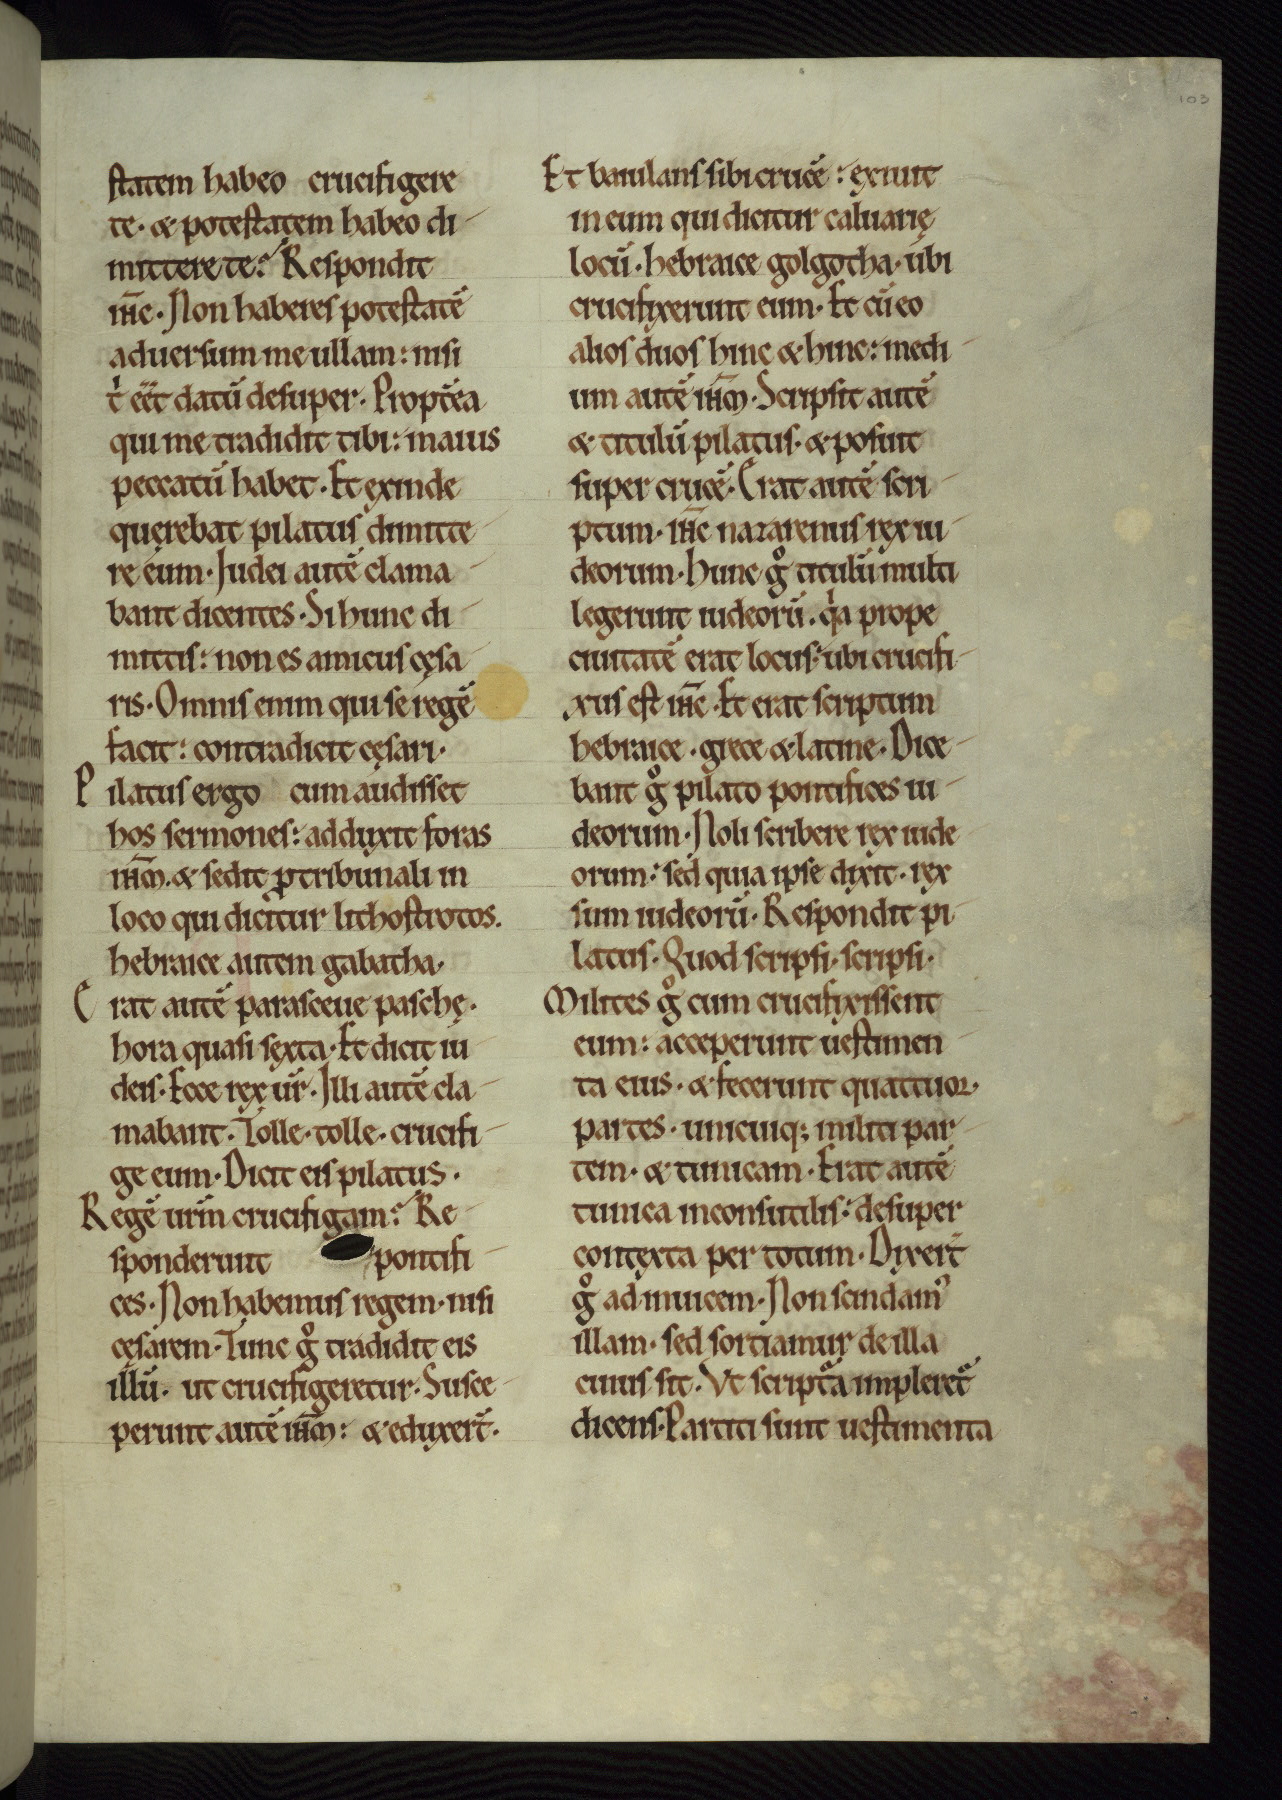 103
statem habeo crucifigere
te· & potestatem habeo di
mittere te? Respondit
ih̅c· Non haberes potestatē
aduersum me ullam: nisi
t̍ eēt datū desuper· Propt̄ea
qui me tradidit tibi: maius
peccatū habet· Et exinde
querebat pilatus dimitte
re eum· Iudei autē clama
bant dicentes· Si hunc di
mittis: non es amicus cęsa
ris· Omnis enim qui se regē
facit: contradicit cęsari·
Pilatus ergo cum audisset
hos sermones: adduxit foras
ih̅m· & sedit ꝓ tribunali in
loco qui dicitur lithostrotos·
hebraice autem gabatha·
Erat autē parasceue paschę·
hora quasi sexta· Et dicit iu
deis· Ecce rex ur̄· Illi autē cla
mabant· Tolle· tolle· crucifi
ge eum· Dicit eis pilatus·
Regē urm̄ crucifigam? Re
sponderunt pontifi
ces· Non habemus regem· nisi
cęsarem· Tunc gͦ tradidit eis
illū· ut crucifigeretur· Susce
perunt autē ih̅m: & eduxer̄t·
Et baiulans sibi crucē: exiuit
in eum qui dicitur caluarię
locū· hebraice golgotha· ubi
crucifixerunt eum· Et cū eo
alios duos hinc & hinc: medi
um autē ih̅m· Scripsit autē
& titulū pilatus· & posuit
super crucē· Erat autē scri
ptum· ih̅c nazarenus rex iu
deorum· Hunc gͦ titulū multi
legerunt iudeorū· qͥa prope
ciuitatē erat locus: ubi crucifi
xus est ih̅c· Et erat scriptum
hebraice· grece & latine· Dice
bant gͦ pilato pontifices iu
deorum· Noli scribere rex iude
orum: sed quia ipse dixit· rex
sum iudeorū· Respondit pi
latus· Quod scripsi· scripsi·
Milites gͦ cum crucifixissent
eum: acceperunt uestimen
ta eius· & fecerunt quattuor·
partes· unicuiq; militi par
tem· & tunicam· Erat autē
tunica inconsutilis: desuper
contexta per totum· Dixer̄t
gͦ ad inuicem· Non scindamꝰ
illam· sed sortiamur de illa
cuius sit· Vt scriptᷓa impleret᷑
dicens· Partiti sunt uestimenta